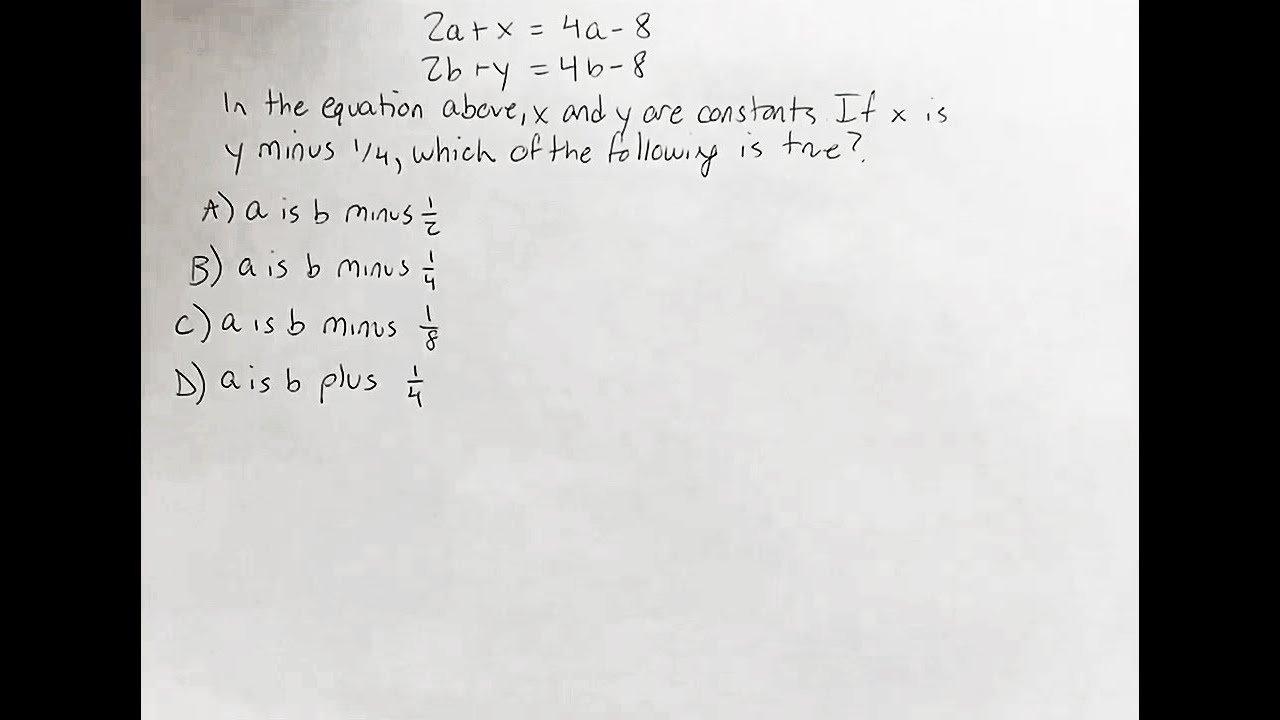 2a + x = 4a - 8
2b + y = 4b - 8
In the equation above, x and y are constants. If x is
y minus 1/4, which of the following is true?
A) a is b minus 1/2
B) a is b minus 1/4
C) a is b minus 1/8
D) a is b plus 1/4